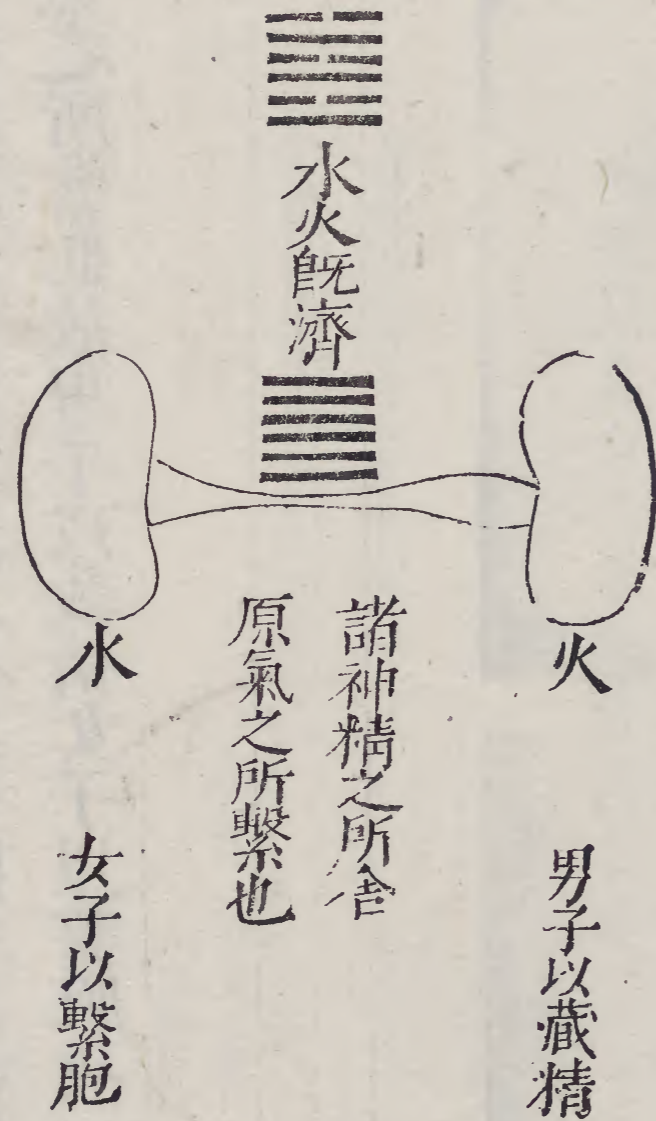 水火既濟
火
男子以藏精
諸神精之所舍
原氣之所繫也
水
女子以繫胞